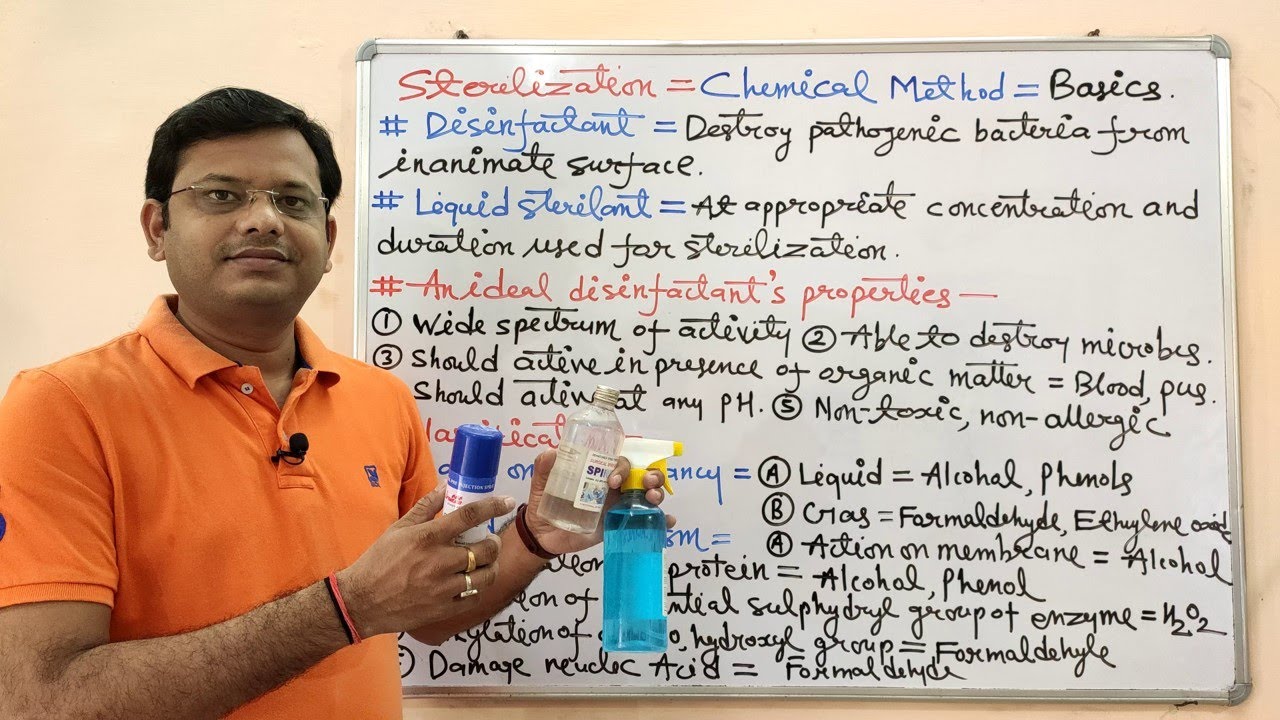 Sterilization = Chemical Method = Basics.
# Disinfactant = Destroy pathogenic bacteria from
inanimate surface.
# Liquid sterilant = At appropriate concentration and
duration used for sterilization.
# An ideal disinfactant's properties —
① Wide spectrum of activity ② Able to destroy microbes.
③ Should active in presence of organic matter = Blood, pus.
Should active at any PH. ⑤ Non-toxic, non-allergic
on ancy = Ⓐ Liquid = Alcohal, Phenols
Ⓑ Gas = Formaldehyde, Ethylene
sm = Ⓐ Action on membrane = Alcohal
protein = Alcohal, Phenol
ion of ntial sulphydryl group of enzyme = H2O2
kylation of o, hydroxyl group = Formaldehyle
Damage neuclec Acid = Formaldehyde
INJECTION
SPI